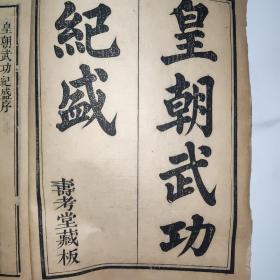 皇朝武功
紀盛
壽考堂藏板
皇朝武功紀盛序